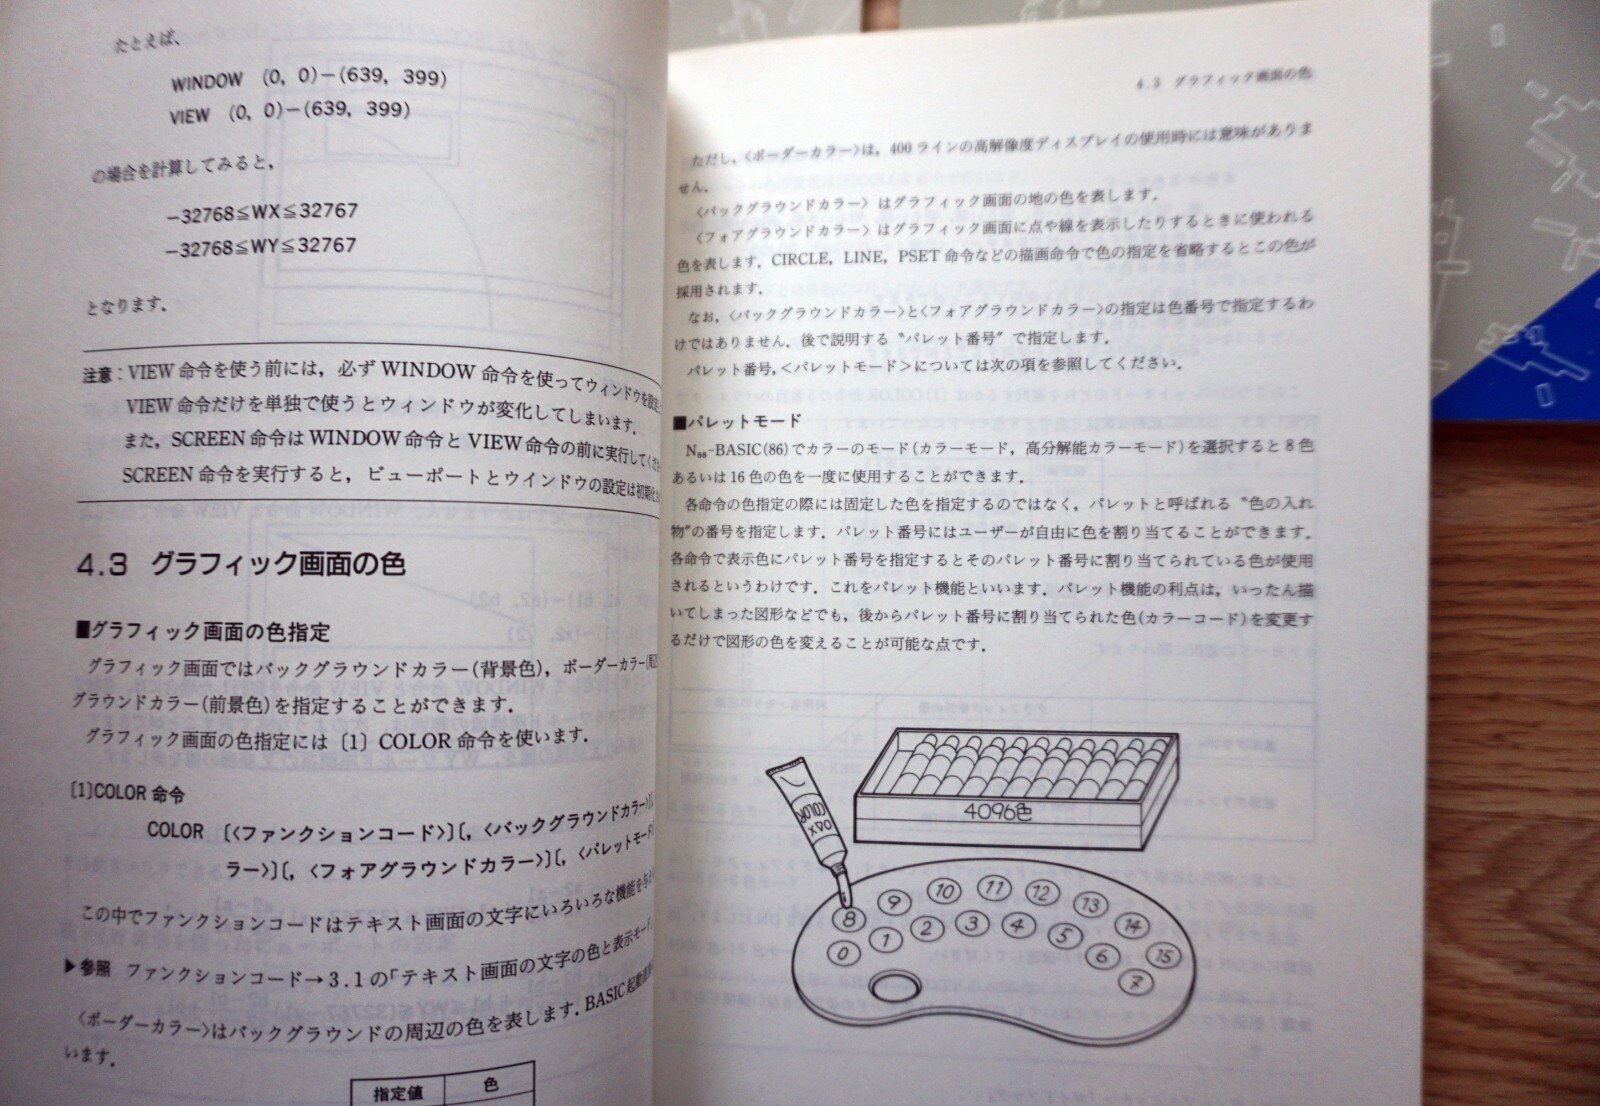 たとえば,
WINDOW (0, 0)−(639, 399)
VIEW (0, 0)−(639, 399)
の場合を計算してみると,
−32768≦WX≦32767
−32768≦WY≦32767
となります.
注意：VIEW 命令を使う前には，必ず WINDOW 命令を使ってウィンドウを設定
VIEW 命令だけを単独で使うとウィンドウが変化してしまいます.
また，SCREEN 命令は WINDOW 命令と VIEW 命令の前に実行してくだ
SCREEN 命令を実行すると，ビューポートとウインドウの設定は初期化
4.3 グラフィック画面の色
■グラフィック画面の色指定
グラフィック画面ではバックグラウンドカラー(背景色)，ボーダーカラー
グラウンドカラー(前景色)を指定することができます.
グラフィック画面の色指定には〔1〕COLOR 命令を使います.
〔1〕COLOR 命令
COLOR 〔〈ファンクションコード〉〕〔，〈バックグラウンドカラー〉〕
ラー〉〕〔，〈フォアグラウンドカラー〉〕〔，〈パレットモード
この中でファンクションコードはテキスト画面の文字にいろいろな機能を与
▶参照 ファンクションコード→3.1の「テキスト画面の文字の色と表示モード
〈ボーダーカラー〉はバックグラウンドの周辺の色を表します. BASIC起動直後
います.
指定値 色
4.3 グラフィック画面の色
ただし，〈ボーダーカラー〉は，400 ラインの高解像度ディスプレイの使用時には意味がありま
せん.
〈バックグラウンドカラー〉はグラフィック画面の地の色を表します.
〈フォアグラウンドカラー〉はグラフィック画面に点や線を表示したりするときに使われる
色を表します. CIRCLE，LINE，PSET 命令などの描画命令で色の指定を省略するとこの色が
採用されます.
なお，〈バックグラウンドカラー〉と〈フォアグラウンドカラー〉の指定は色番号で指定するわ
けではありません. 後で説明する〝パレット番号″で指定します.
パレット番号，＜パレットモード＞については次の項を参照してください.
■パレットモード
N₈₈-BASIC(86)でカラーのモード(カラーモード，高分解能カラーモード)を選択すると 8 色
あるいは 16 色の色を一度に使用することができます.
各命令の色指定の際には固定した色を指定するのではなく，パレットと呼ばれる〝色の入れ
物″の番号を指定します. パレット番号にはユーザーが自由に色を割り当てることができます.
各命令で表示色にパレット番号を指定するとそのパレット番号に割り当てられている色が使用
されるというわけです. これをパレット機能といいます. パレット機能の利点は，いったん描
いてしまった図形などでも，後からパレット番号に割り当てられた色(カラーコード)を変更す
るだけで図形の色を変えることが可能な点です.
4096色
COLOR
8 9 10 11 12 13 14 15
0 1 2 3 4 5 6 7